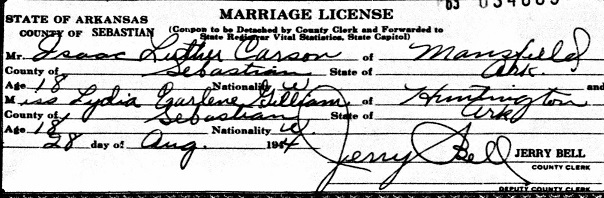 MARRIAGE LICENSE
STATE OF ARKANSAS
COUNTY OF SEBASTIAN
(Coupon to be Detached by County Clerk and Forwarded to
State Registrar Vital Statistics, State Capitol)
Mr. Isaac Luther Carson of Mansfield
County of Sebastian State of Ark.
Age 18 Nationality and
Miss Lydia Earlene Gilliam of Huntington
County of Sebastian State of Ark
Age 18 Nationality
28 day of Aug. 194
Jerry Bell
JERRY BELL
COUNTY CLERK
DEPUTY COUNTY CLERK